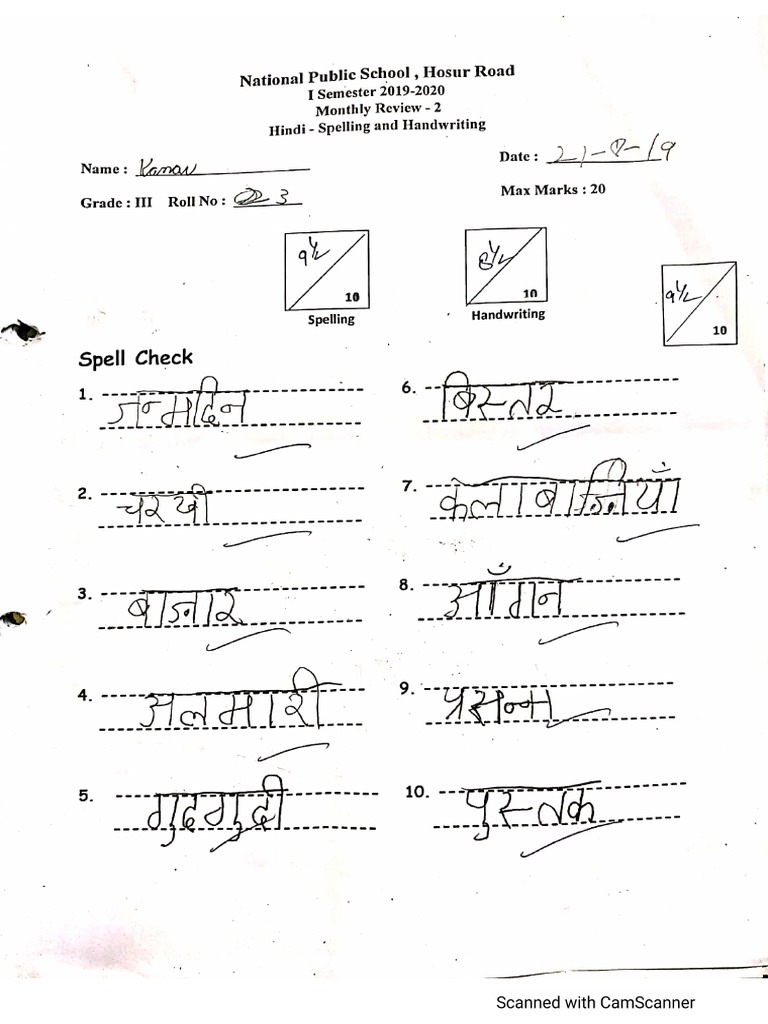 National Public School , Hosur Road
I Semester 2019-2020
Monthly Review - 2
Hindi - Spelling and Handwriting
Name : Kanav
Date : 21-8-19
Grade : III Roll No : 3
Max Marks : 20
9½
10
Spelling
8½
10
Handwriting
9½
10
Spell Check
1. जन्मदिन
2. चरखी
3. बाज़ार
4. अलमारी
5. गुदगुदी
6. बिस्तर
7. कलाबाज़ियाँ
8. आँगन
9. प्रसन्न
10. पुस्तक
Scanned with CamScanner